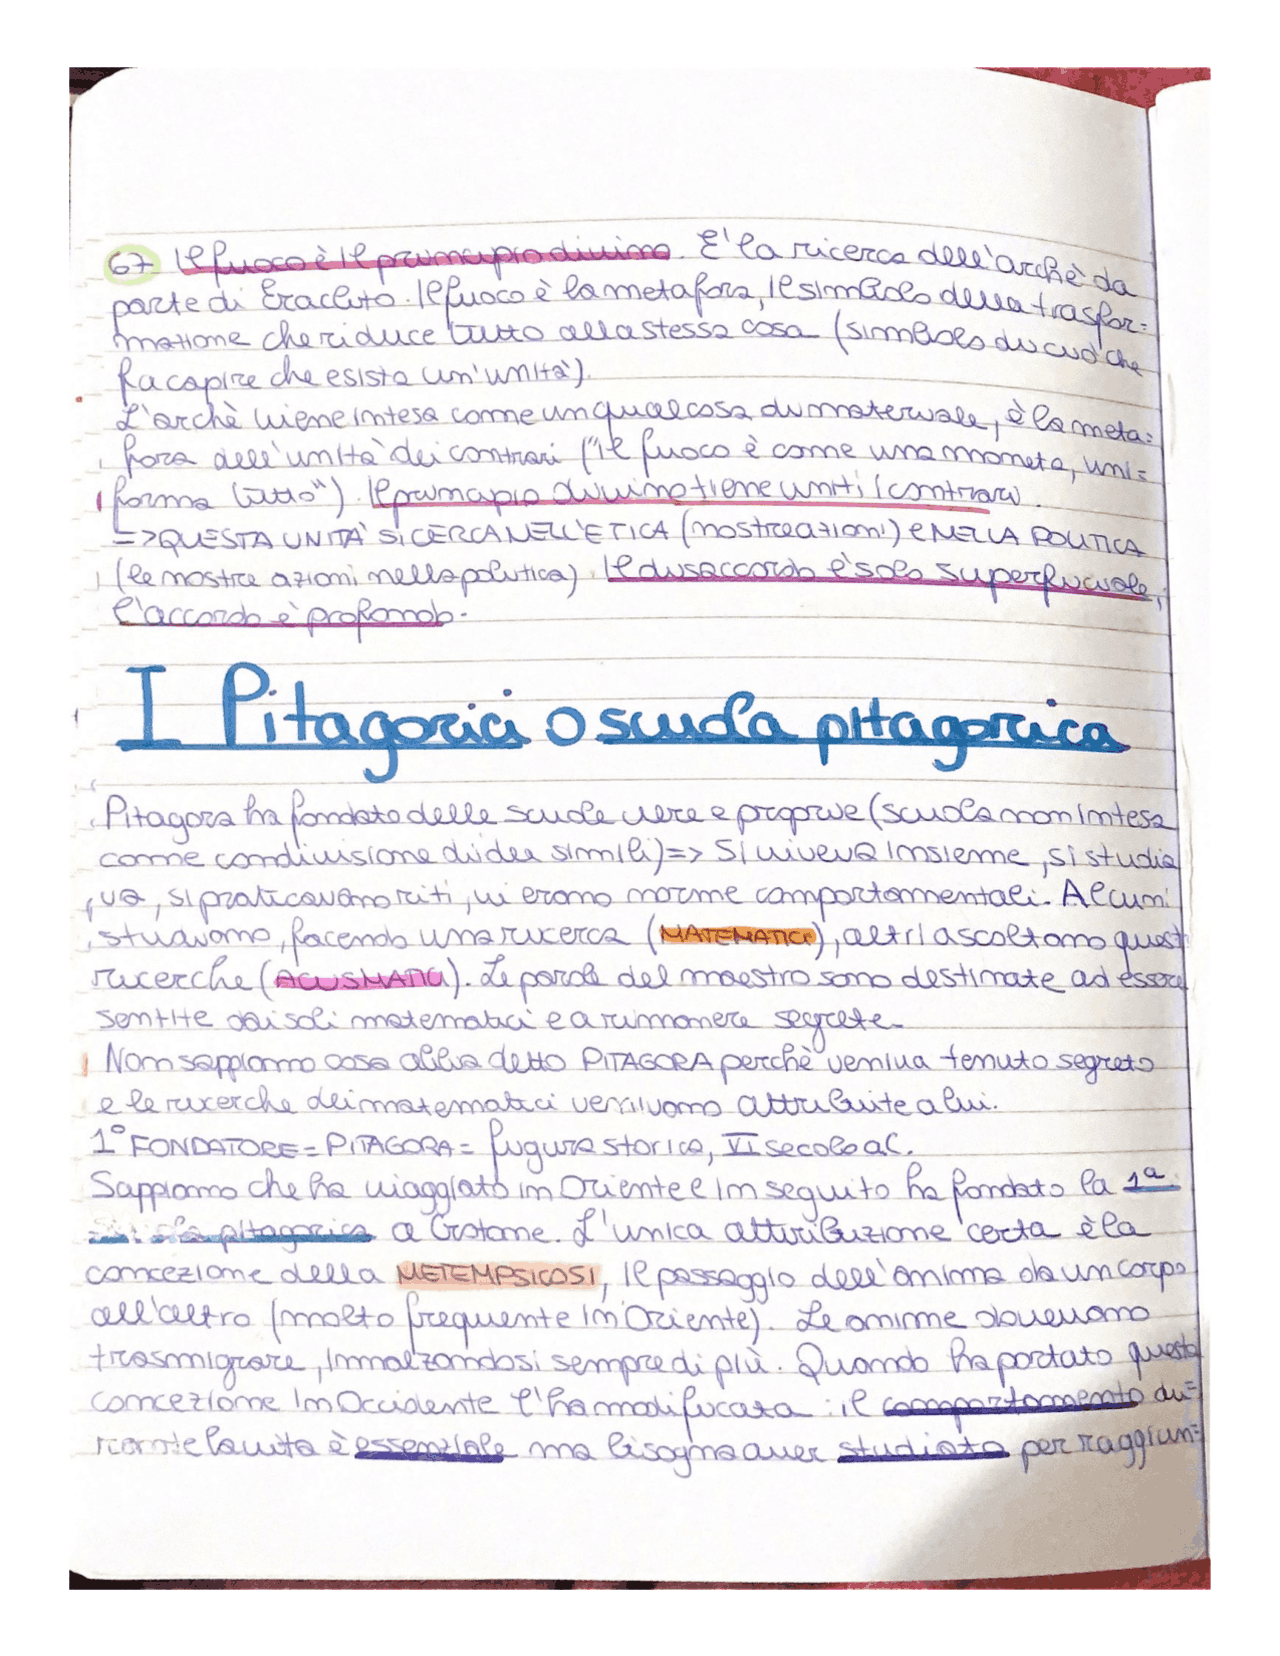 67 Il fuoco è il principio divino. E' la ricerca dell'archè da
parte di Eraclito. Il fuoco è la metafora, il simbolo della trasfor=
mazione che riduce tutto alla stessa cosa (simbolo di ciò che
fa capire che esista un'unità).
L'archè viene intesa come un qualcosa di materiale, è la meta=
fora dell'unità dei contrari ("il fuoco è come una moneta, uni=
forma tutto"). Il principio divino tiene uniti i contrari.
=>QUESTA UNITÀ SI CERCA NELL'ETICA (nostre azioni) e NELLA POLITICA
(le nostre azioni nella politica). Il disaccordo è solo superficiale,
l'accordo è profondo.
I Pitagorici o scuola pitagorica
Pitagora ha fondato delle scuole vere e proprie (scuola non intesa
come condivisione di idee simili)=> Si viveva insieme, si studia
va, si praticavano riti, vi erano norme comportamentali. Alcuni
studiano, facendo una ricerca (MATEMATICI), altri ascoltano quest
ricerche (ACUSMATICI). Le parole del maestro sono destinate ad essere
sentite dai soli matematici e a rimanere segrete.
Non sappiamo cosa abbia detto PITAGORA perchè veniva tenuto segreto
e le ricerche dei matematici venivano attribuite a lui.
1° FONDATORE = PITAGORA = figura storica, VI secolo aC.
Sappiamo che ha viaggiato in Oriente e in seguito ha fondato la 1ª
scuola pitagorica a Crotone. L'unica attribuzione certa è la
concezione della METEMPSICOSI, il passaggio dell'anima da un corpo
all'altro (molto frequente in Oriente). Le anime dovevano
trasmigrare, innalzandosi sempre di più. Quando ha portato questa
concezione in Occidente l'ha modificata: il comportamento du=
rante la vita è essenziale ma bisogna aver studiato per raggiun=